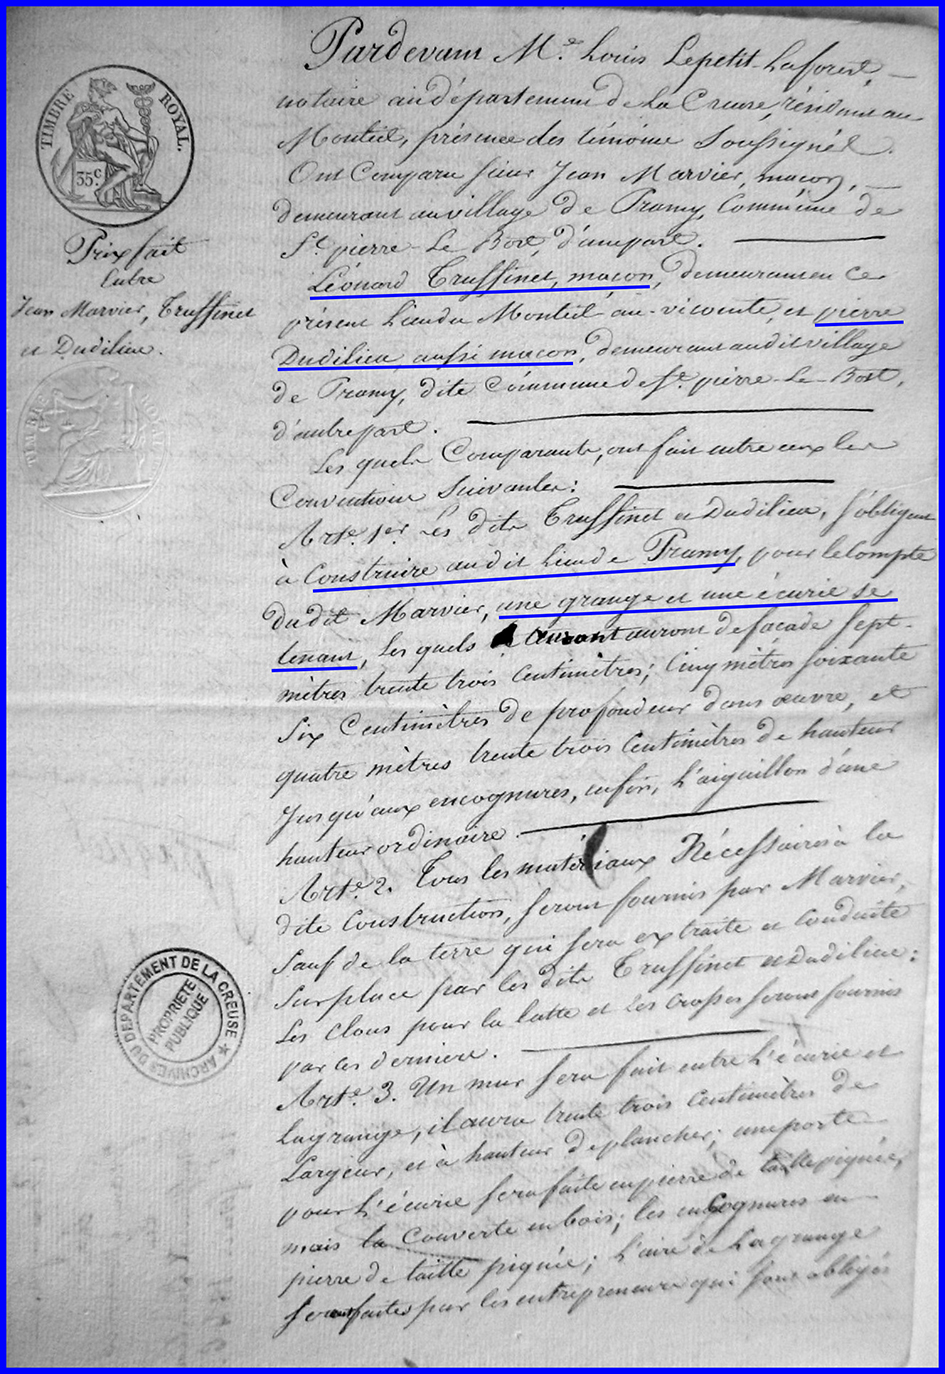 TIMBRE ROYAL.
35c.
Prix fait
Entre
Jean Marvier, Truffinet
et Dudilieu.
Pardevant Me. Louis Lepetit-Laforest,
notaire au département de la Creuse, résidant au
Monteil, présence des témoins Soussignés.
Ont Comparu sieur Jean Marvier, maçon,
demeurant au village de Pramy, Commune de
St. pierre-Le-Bost, d'une part.
Léonard Truffinet, maçon, demeurant en ce
présent Lieu du Monteil-au-vicomte, et pierre
Dudilieu, aussi maçon, demeurant audit village
de Pramy, dite Commune de St. pierre-Le-Bost,
d'autre part.
Les quels Comparants, ont fait entre eux les
Conventions Suivantes:
Arte. 1er. Les dits Truffinet et Dudilieu, s'obligent
à Construire audit Lieu de Pramy, pour le Compte
dudit Marvier, une grange et une écurie se
tenant, Les quels auront de façade Sept
mètres trente trois Centimètres; Cinq mètres soixante
Six Centimètres de profondeur dans œuvre, et
quatre mètres trente trois Centimètres de hauteur
Jusqu'aux encognures, enfin, L'aiguillon d'une
hauteur ordinaire.
Arte. 2. Tous les matériaux Nécessaires à la
dite Construction, seront fournis par Marvier,
Sauf de la terre qui sera extraite et Conduite
Sur place par les dits Truffinet et Dudilieu;
Les Clous pour la latte et Les crosses seront fournis
par ces derniers.
Arte. 3. Un mur sera fait entre L'écurie et
La grange, il aura trente trois Centimètres de
Largeur, et à hauteur de plancher; une porte
pour L'écurie sera faite en pierre de taille piquée,
mais la Couverte en bois; les encognures en
pierre de taille piquée; L'aire de La grange
seront faites par les entrepreneurs qui sont obligés
ARCHIVES DU DEPARTEMENT DE LA CREUSE
PROPRIETE
PUBLIQUE